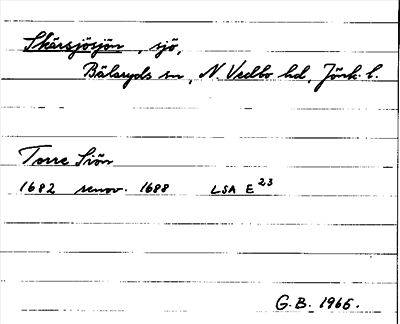 Skärsjösjön, sjö,
Bälaryds sn, N. Vedbo hd, Jönk. l.
Torre Siön
1682 renov. 1688 LSA E 23
G.B. 1966.